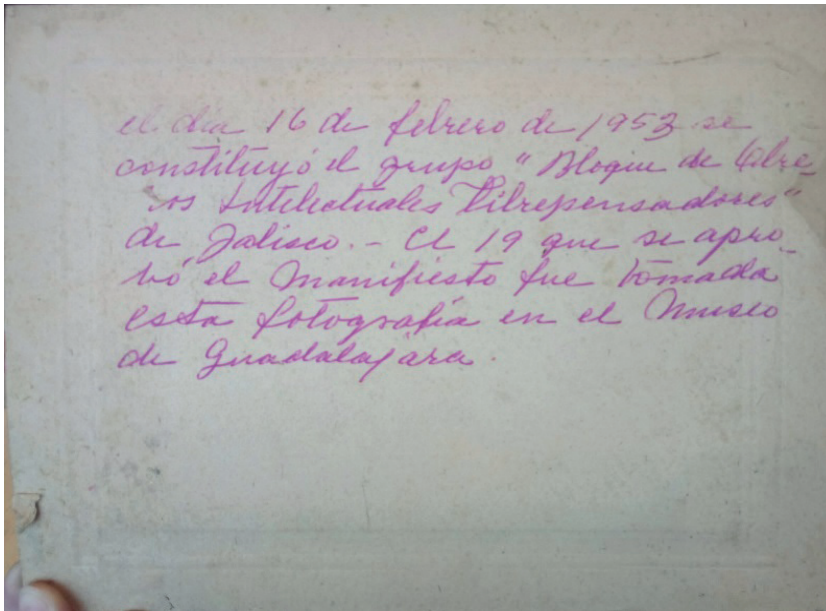 el día 16 de febrero de 1953 se
constituyó el grupo "Bloque de Obre
ros Intelectuales Librepensadores"
de Jalisco. - El 19 que se apro-
bó el Manifiesto fue tomada
esta fotografía en el Museo
de Guadalajara.